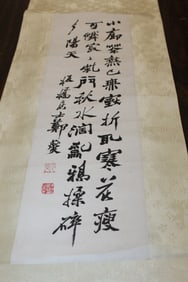 小廊茶熟已無煙折取寒花瘦
可憐寂寂柴門秋水闊亂鴉揉碎
夕陽天 板橋居士鄭燮